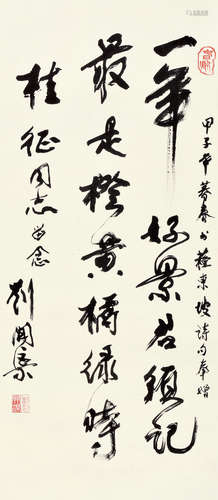 甲子年暮春书蘇東坡诗句奉赠
一年好景君须记
最是橙黄橘绿时
桂征同志留念
劉開渠